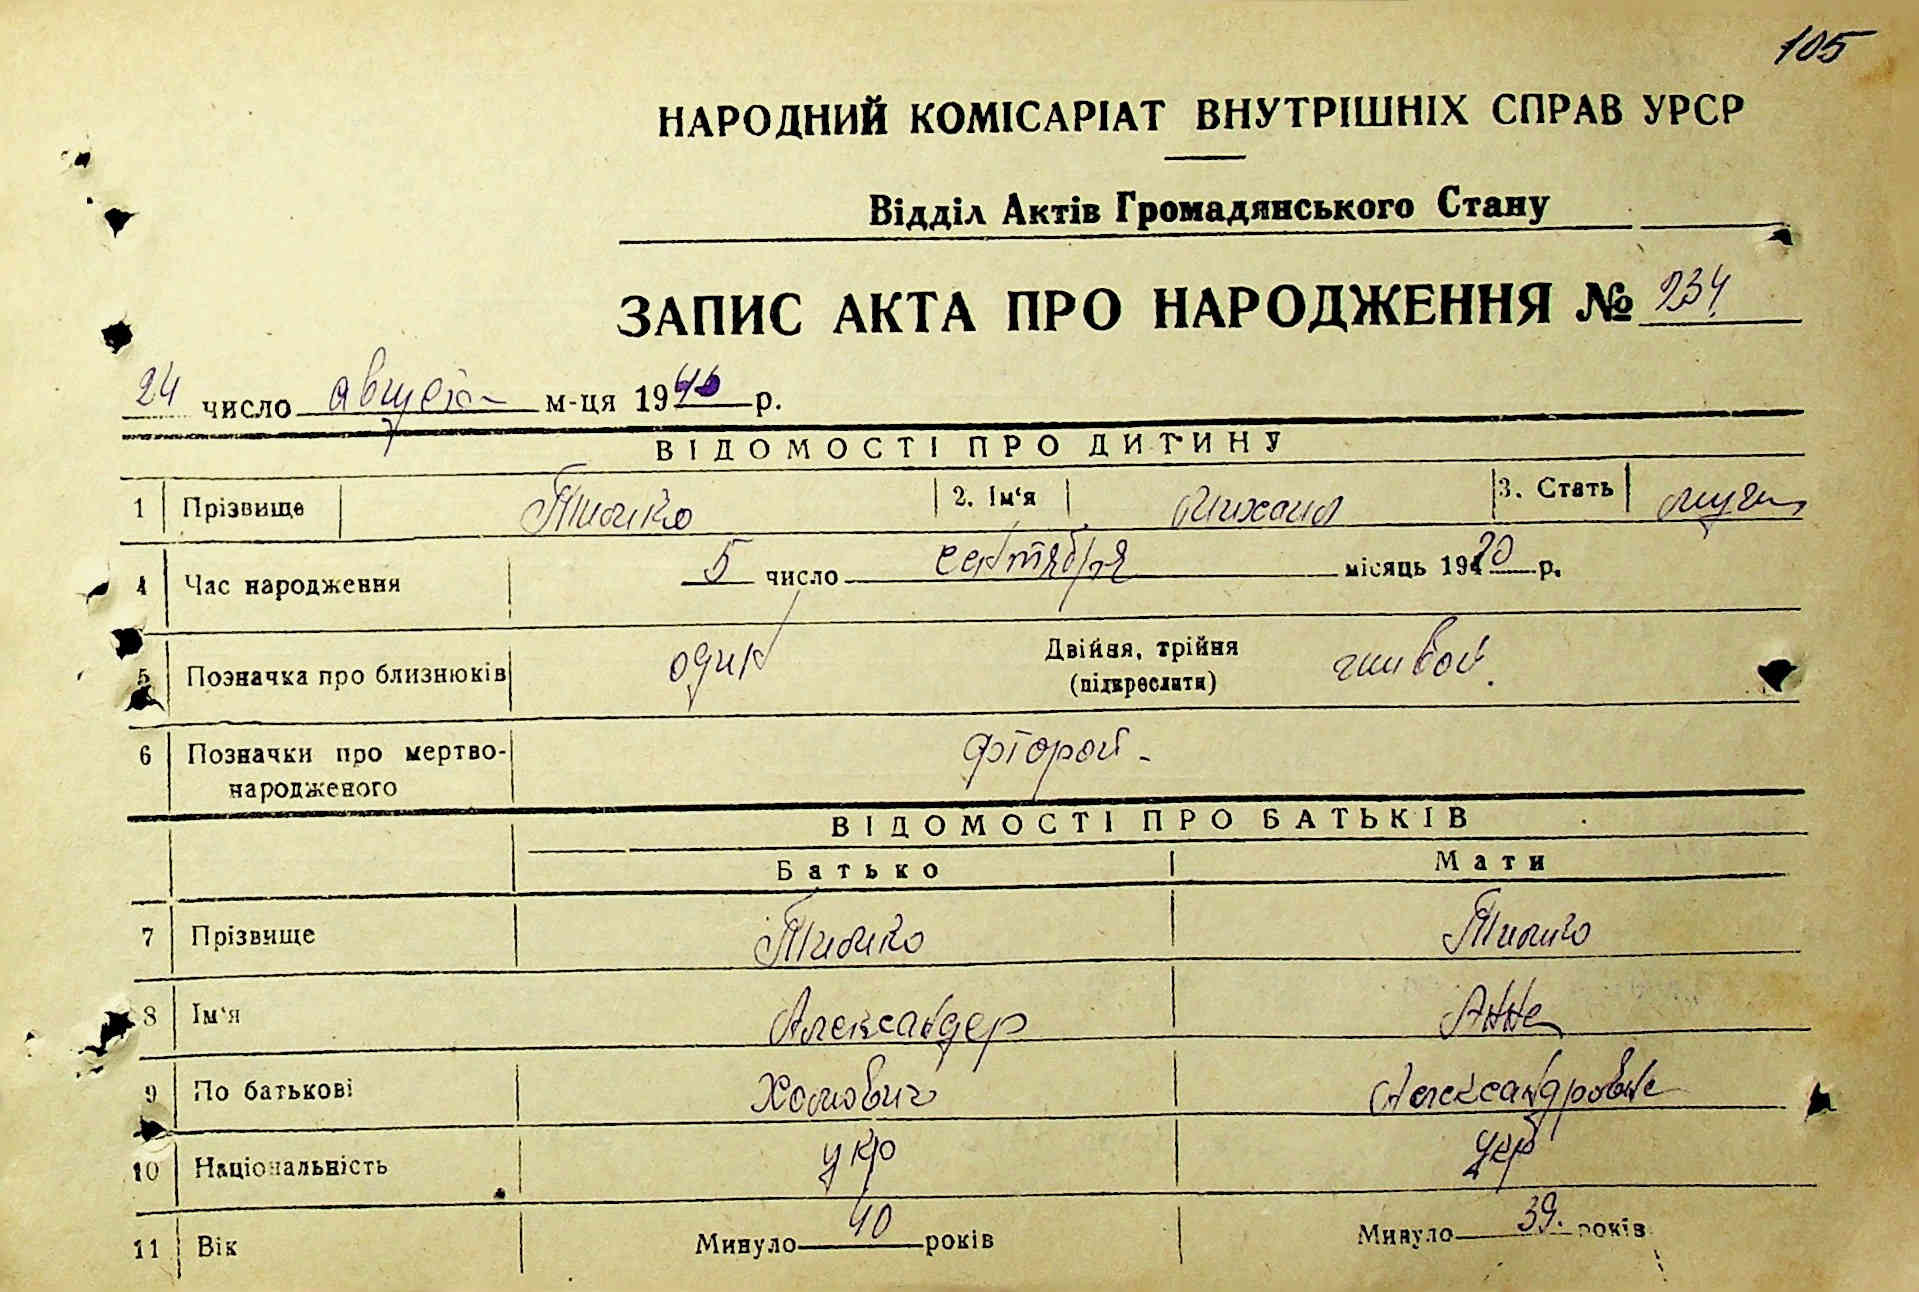 105
НАРОДНИЙ КОМІСАРІАТ ВНУТРІШНІХ СПРАВ УРСР
Відділ Актів Громадянського Стану
ЗАПИС АКТА ПРО НАРОДЖЕННЯ № 234
24 число августа м-ця 1946 р.
ВІДОМОСТІ ПРО ДИТИНУ
1 Прізвище 2. Ім'я Михаил 3. Стать
4 Час народження 5 число сентября місяць 19 р.
5 Позначка про близнюків один Двійня, трійня (підкреслити) живой.
6 Позначки про мертво-
народженого второй -
ВІДОМОСТІ ПРО БАТЬКІВ
Батько Мати
7 Прізвище
8 Ім'я Александер Анна
9 По батькові Хомович Александровна
10 Національність укр укр
11 Вік Минуло 40 років Минуло 39. років